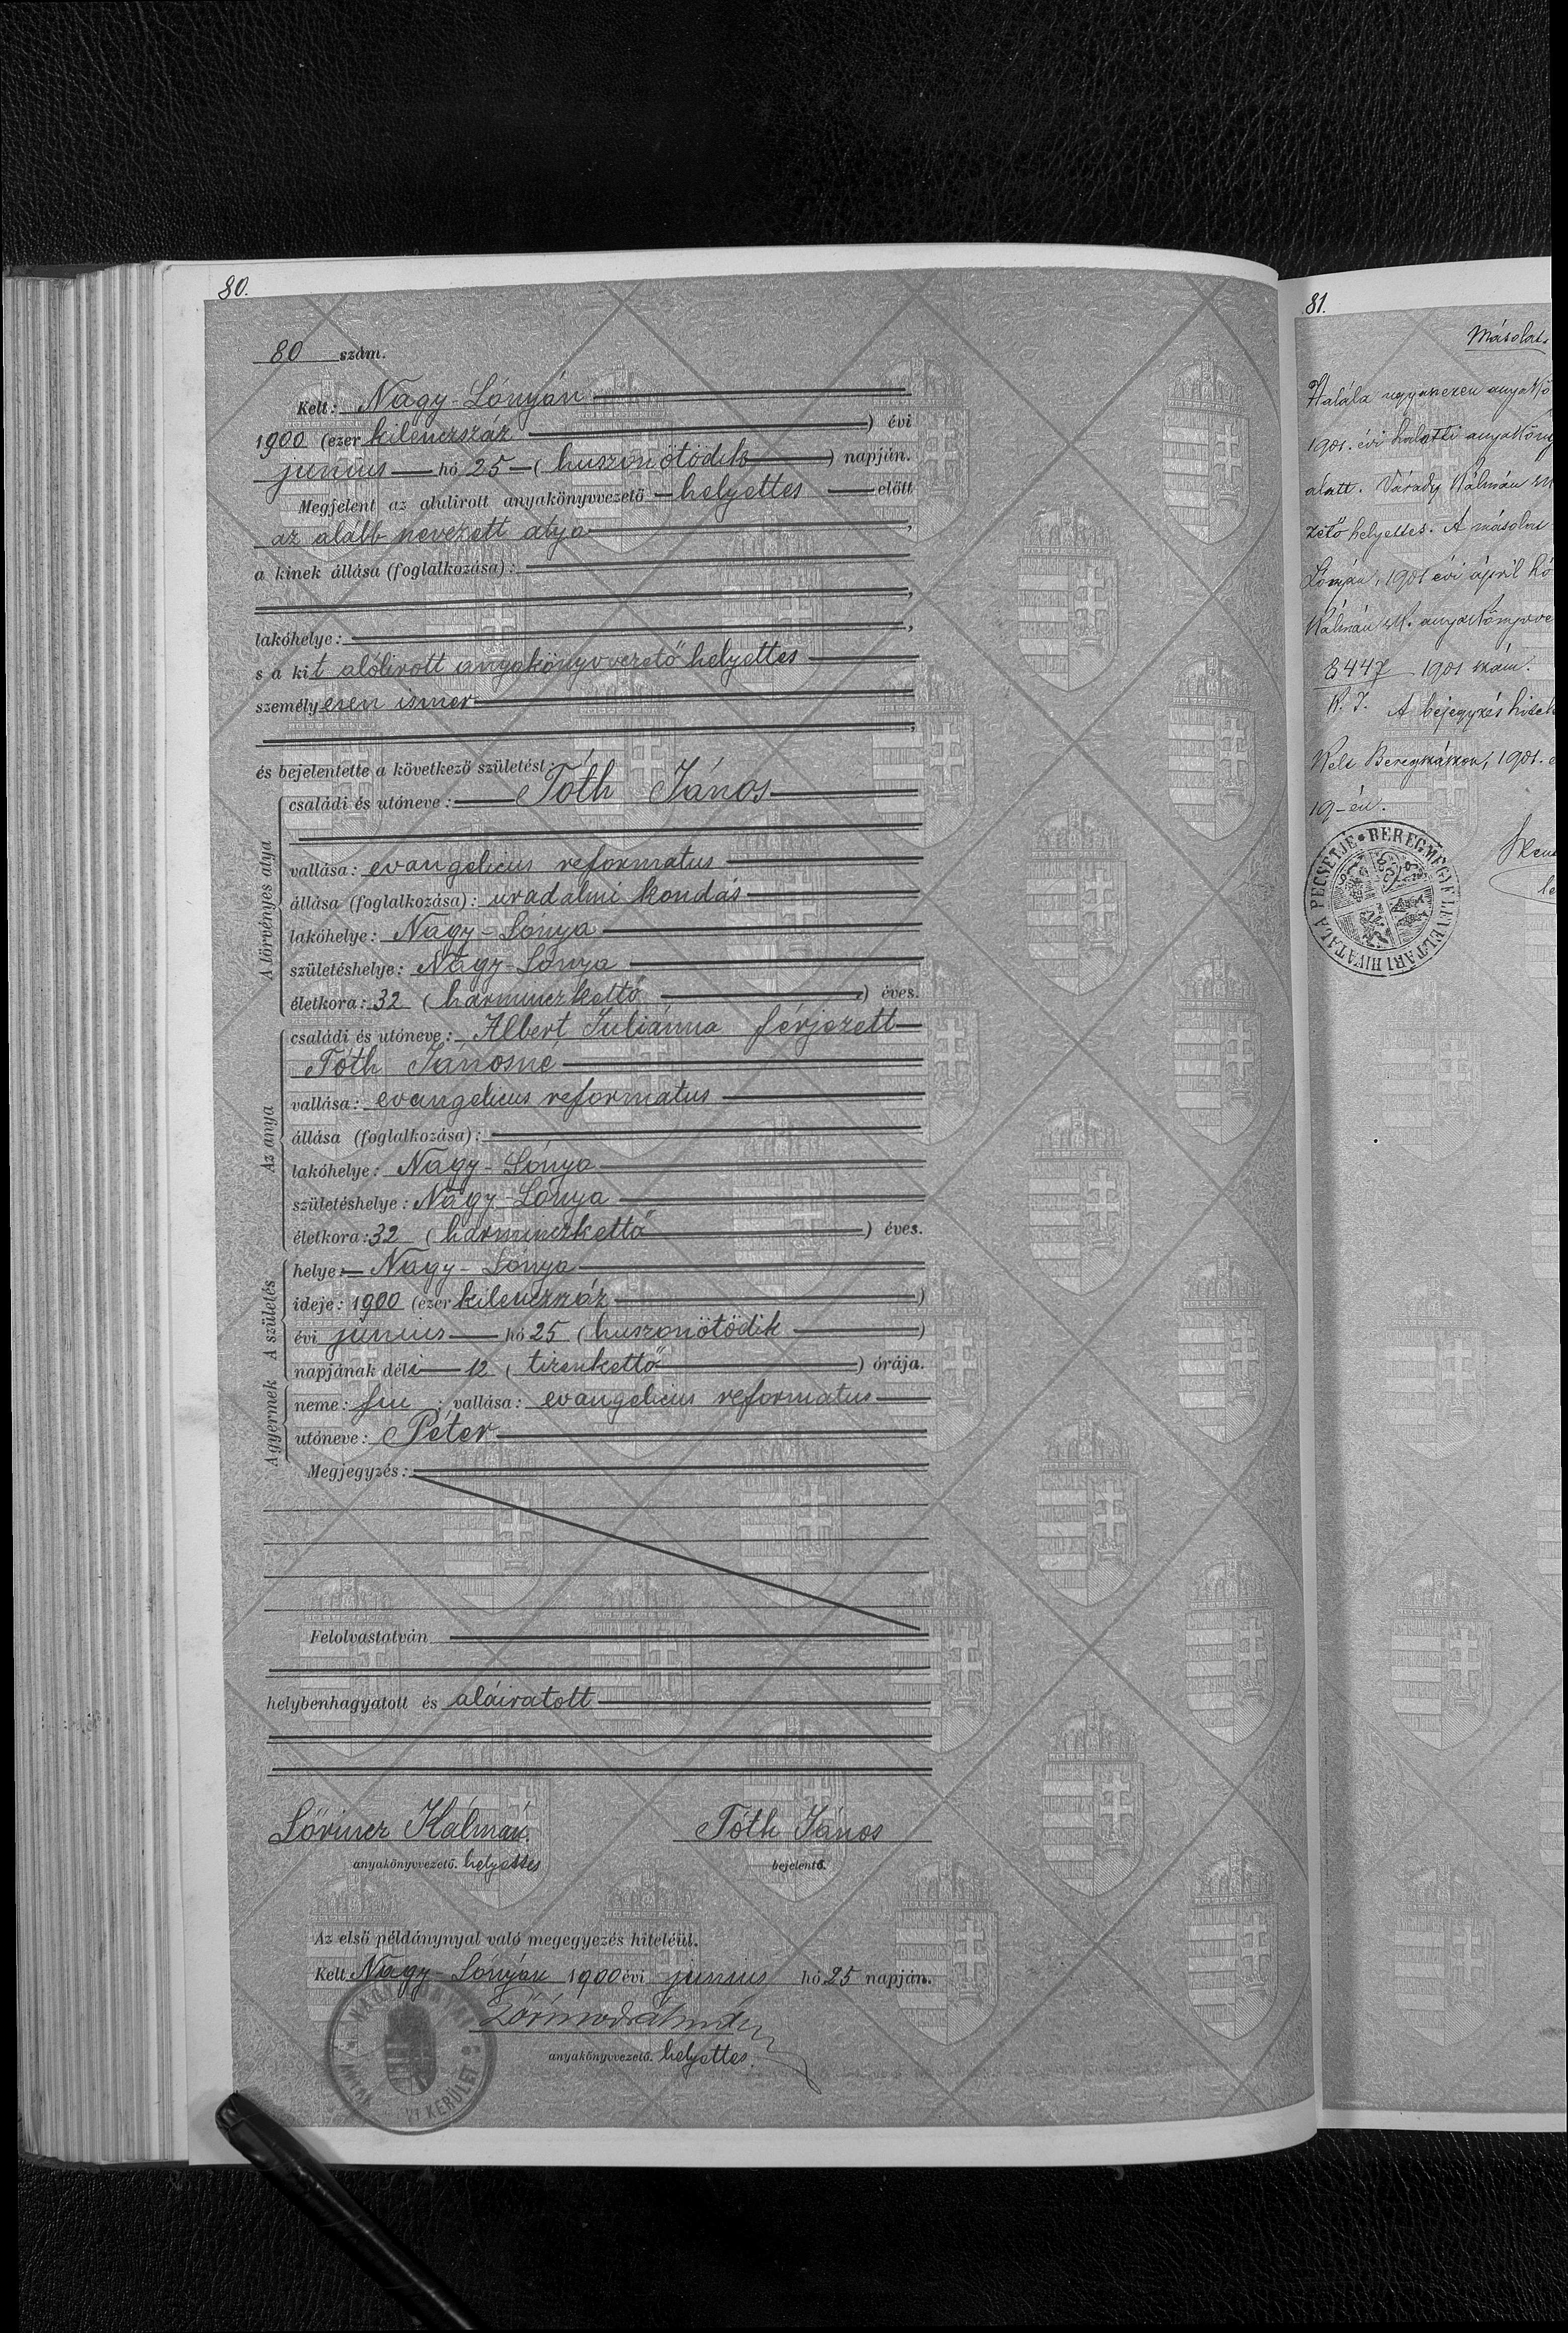 80.
80 szám.
Kelt: Nagy-Lónyán
1900 (ezer kilenczszáz) évi
junius hó 25 (huszonötödik) napján.
Megjelent az alulirott anyakönyvvezető helyettes előtt
az alább nevezett atya,
a kinek állása (foglalkozása):
,
lakóhelye: ,
s a kit alólirott anyakönyvvezető helyettes
személyesen ismer
,
és bejelentette a következő születést:
A törvényes atya
családi és utóneve: Tóth János
vallása: evangelicus reformatus
állása (foglalkozása): uradalmi kondás
lakóhelye: Nagy-Lónya
születéshelye: Nagy-Lónya
életkora: 32 (harminczkettő) éves.
Az anya
családi és utóneve: Albert Juliánna férjezett
Tóth Jánosné
vallása: evangelicus reformatus
állása (foglalkozása):
lakóhelye: Nagy-Lónya
születéshelye: Nagy-Lónya
életkora: 32 (harminczkettő) éves.
A születés
helye: Nagy-Lónya
ideje: 1900 (ezer kilenczszáz)
évi junius hó 25 (huszonötödik)
napjának déli 12 (tizenkettő) órája.
A gyermek
neme: fiu; vallása: evangelicus reformatus
utóneve: Péter
Megjegyzés:
Felolvastatván
helybenhagyatott és aláiratott
Lőrincz Kálmán
anyakönyvvezető. helyettes
Tóth János
bejelentő.
Az első példánynyal való megegyezés hiteléül.
Kelt Nagy-Lónyán 1900 évi junius hó 25 napján.
anyakönyvvezető. helyettes.
KERÜLET
81.
Másolat.
Halála ugyanezen anyakö
1901. évi halotti anyakönyv
alatt. Várady Kálmán
zető helyettes. A másolat
Lónyán, 1901 évi ápril hó
Kálmán anyakönyvve
8447 1901 szám.
K. I. A bejegyzés hitel
Kelt Beregszászon, 1901.
19-én.
BEREGMEGYE LEVÉLTÁRI HIVATALA PECSÉTJE